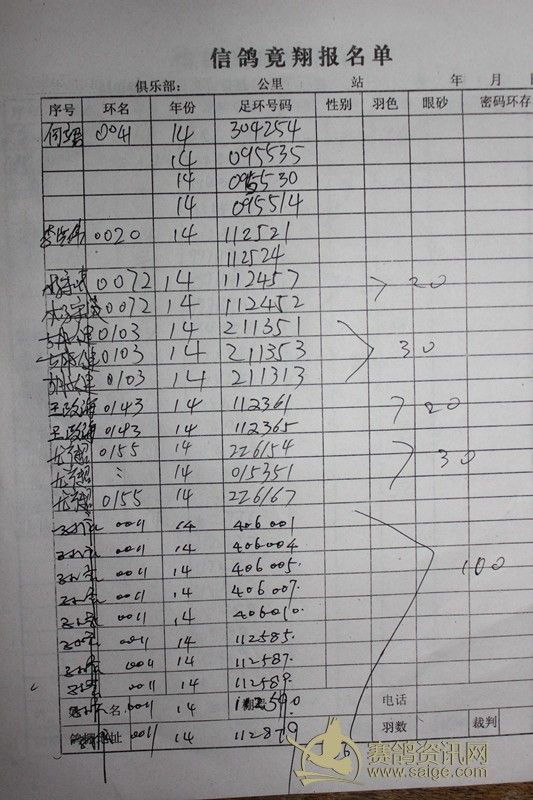 信鸽竟翔报名单
俱乐部： 公里 站 年 月
序号 环名 年份 足环号码 性别 羽色 眼砂 密码环存
0041 14 304254
14 095535
14 095530
14 095514
0020 14 112521
112524
0072 14 112457 20
0072 14 112452
0103 14 211351
0103 14 211353 30
0103 14 211313
王政海 0143 14 112361 20
王政海 0143 14 112365
0155 14 226154 30
14 015351
0155 14 226167
0011 14 406001
0011 14 406004
0011 14 406005. 100
0011 14 406007.
0011 14 406010.
0011 14 112585.
0011 14 112587.
0011 14 112589.
名 0011 14 电话
址 0011 14 112879 羽数 裁判
赛鸽资讯网
www.saige.com